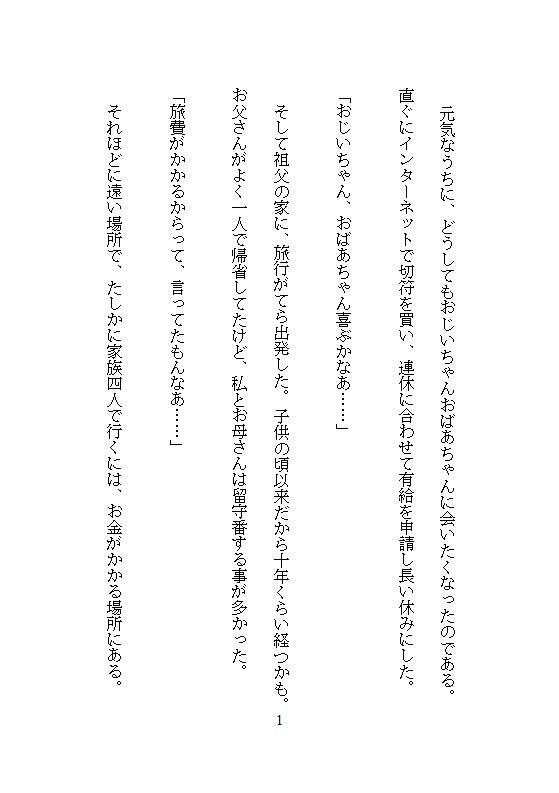 元気なうちに、どうしてもおじいちゃんおばあちゃんに会いたくなったのである。
直ぐにインターネットで切符を買い、連休に合わせて有給を申請し長い休みにした。
「おじいちゃん、おばあちゃん喜ぶかなあ……」
　そして祖父の家に、旅行がてら出発した。子供の頃以来だから十年くらい経つかも。
お父さんがよく一人で帰省してたけど、私とお母さんは留守番する事が多かった。
「旅費がかかるからって、言ってたもんなあ……」
　それほどに遠い場所で、たしかに家族四人で行くには、お金がかかる場所にある。
1